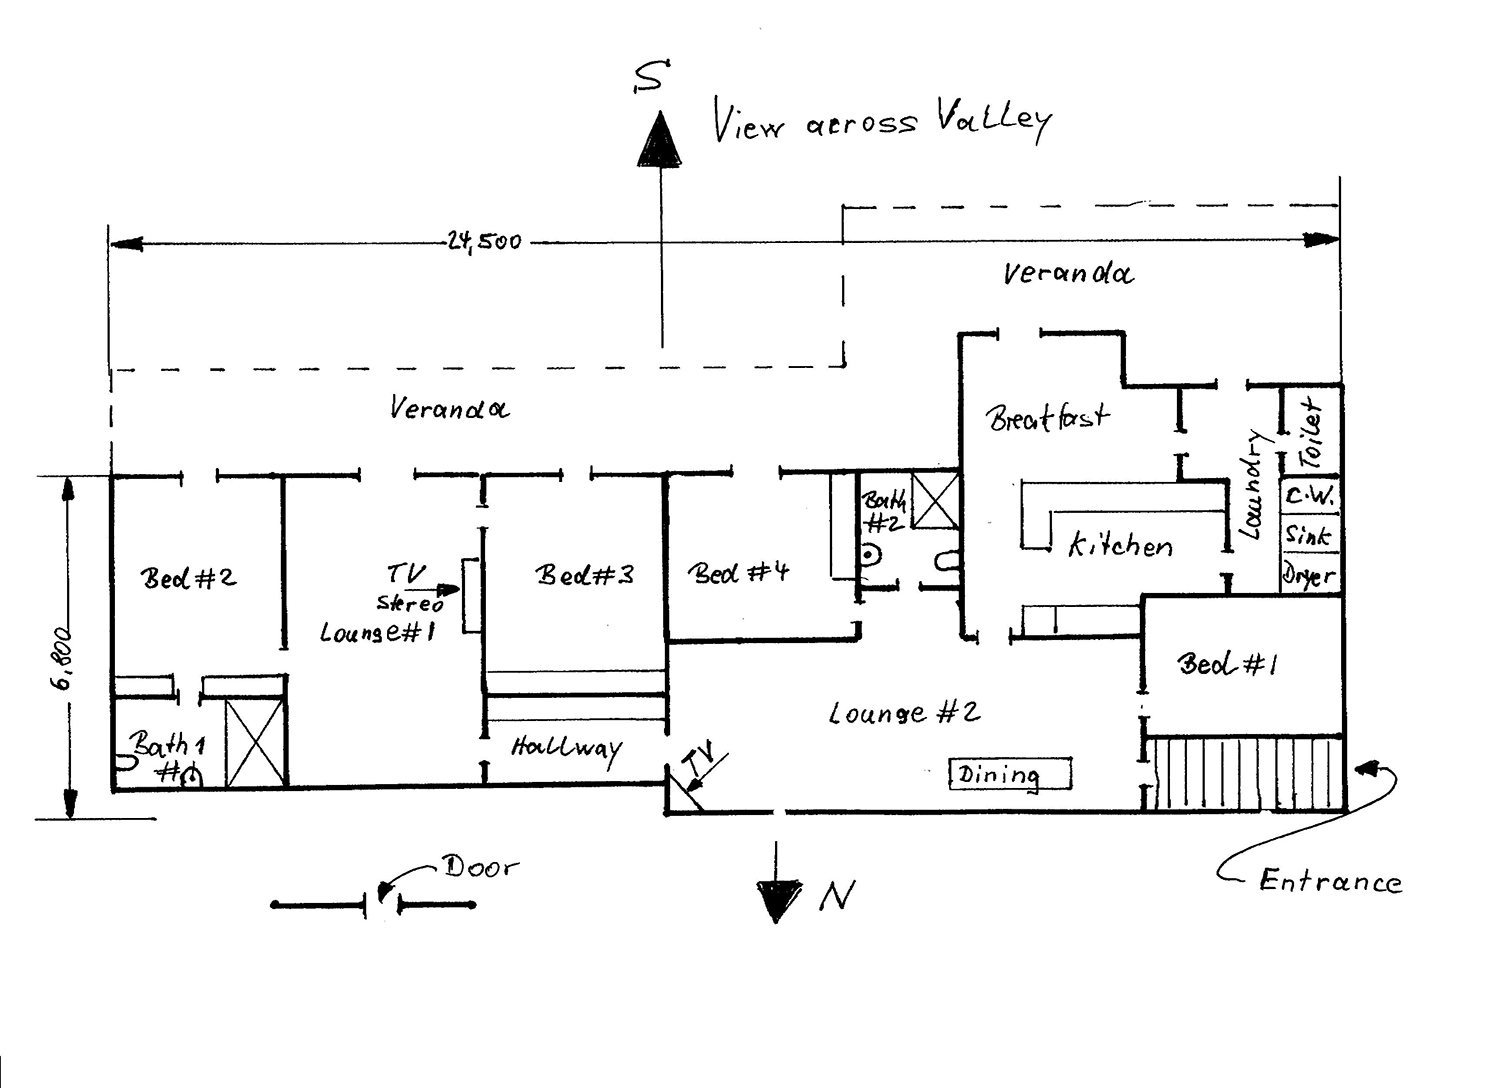 S
View across Valley
24,500
Veranda
Veranda
Breakfast
Toilet
Laundry
Bath
#2
C.W.
Sink
Dryer
Kitchen
Bed #2
TV
Stereo
Lounge #1
Bed #3
Bed #4
6,800
Bed #1
Lounge #2
Bath 1
#
Hallway
TV
Dining
Door
N
Entrance